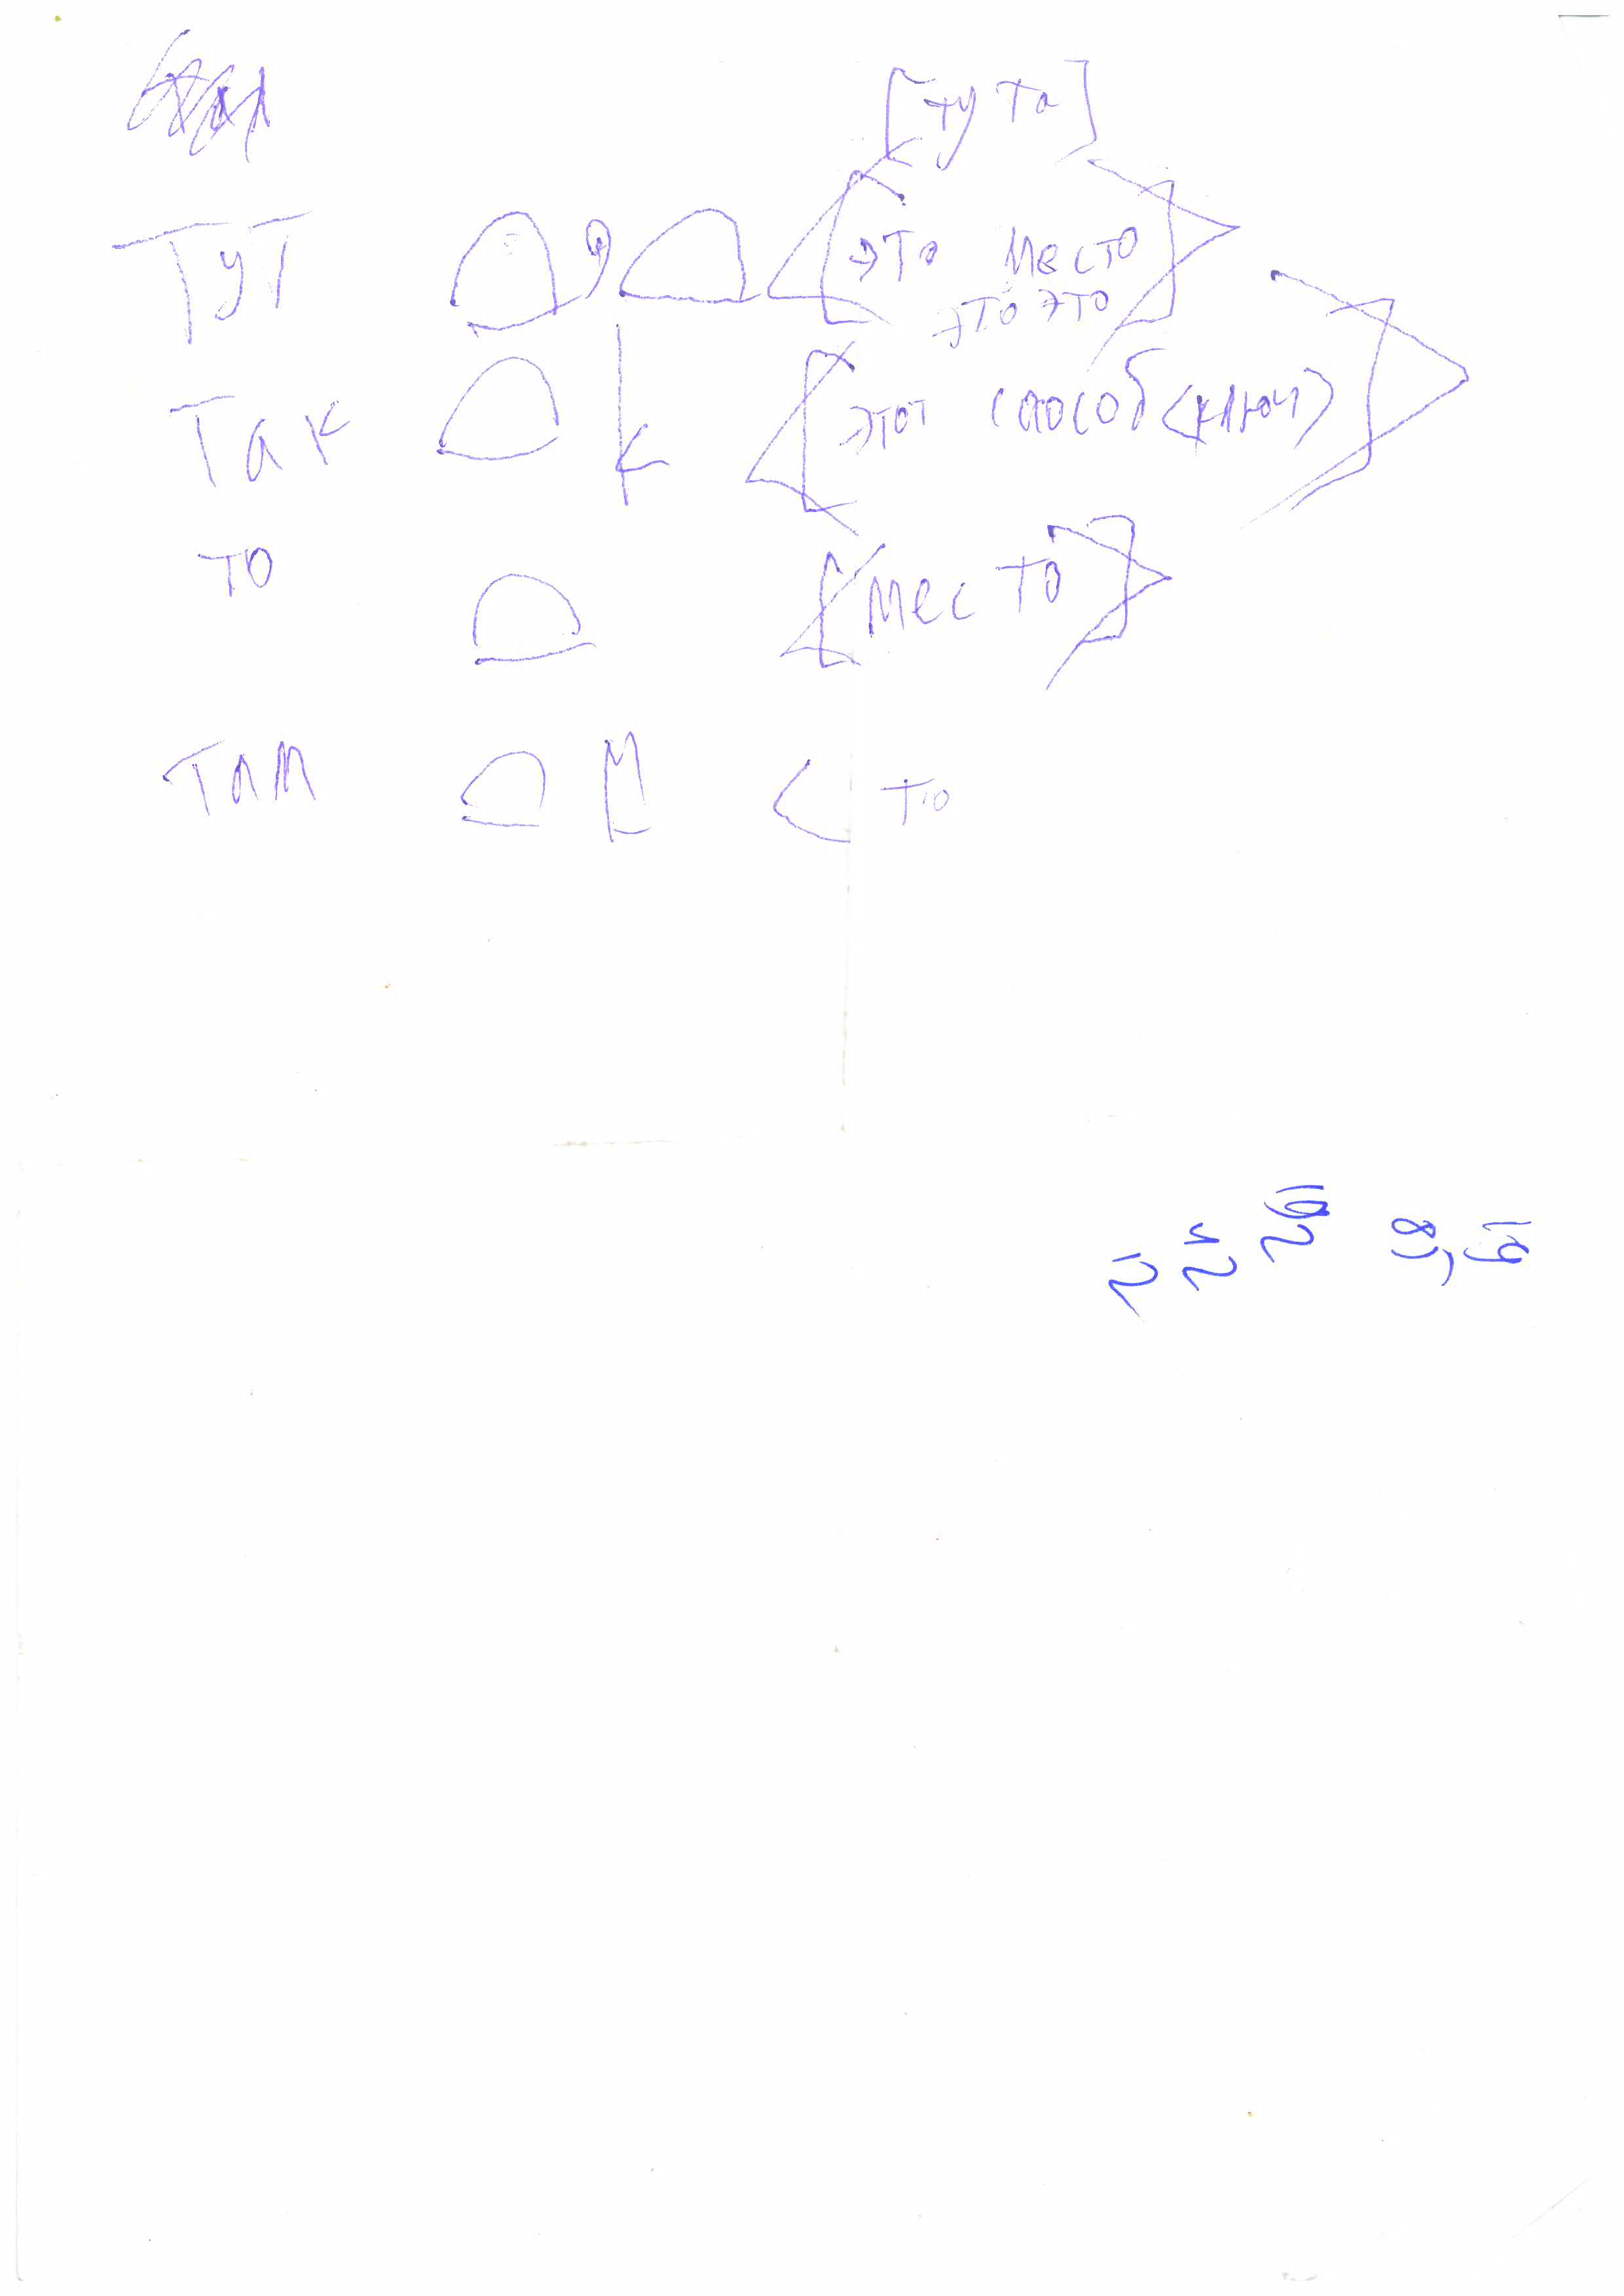 [тута]
тут [это место]
это это
так [этот способ (ключ)]
то [место]
там то